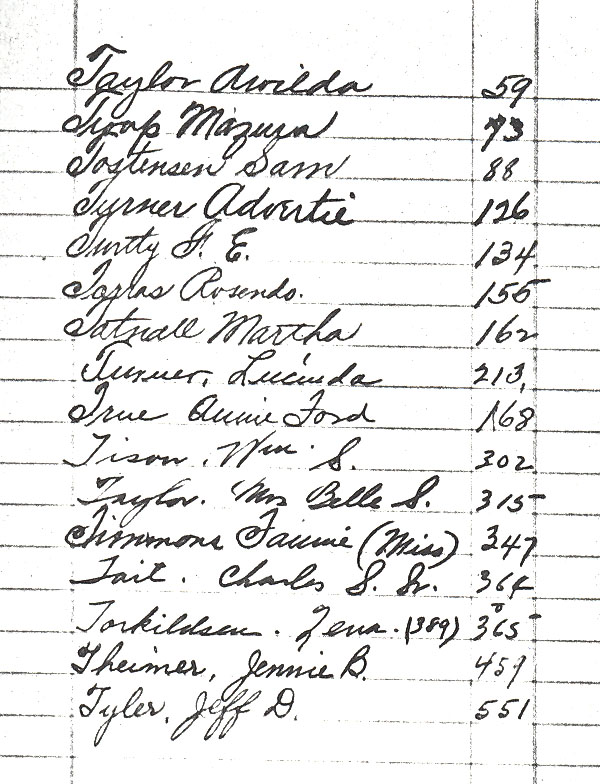 Taylor Awilda 59
Troup Mazura 73
Tostensen Sam 88
Turner Advertie 126
Turtty F. E. 134
Torras Rosendo. 155
Tatnall Martha 162
Turner, Lucinda 213
True Annie Ford 168
Tison, Wm. S. 302
Taylor. Mrs Belle S. 315
Timmons Fannie (Miss) 347
Tait. Charles S. Sr. 364
Torkildsen. Zena. (389) 365
Theimer, Jennie B. 459
Tyler, Jeff D. 551